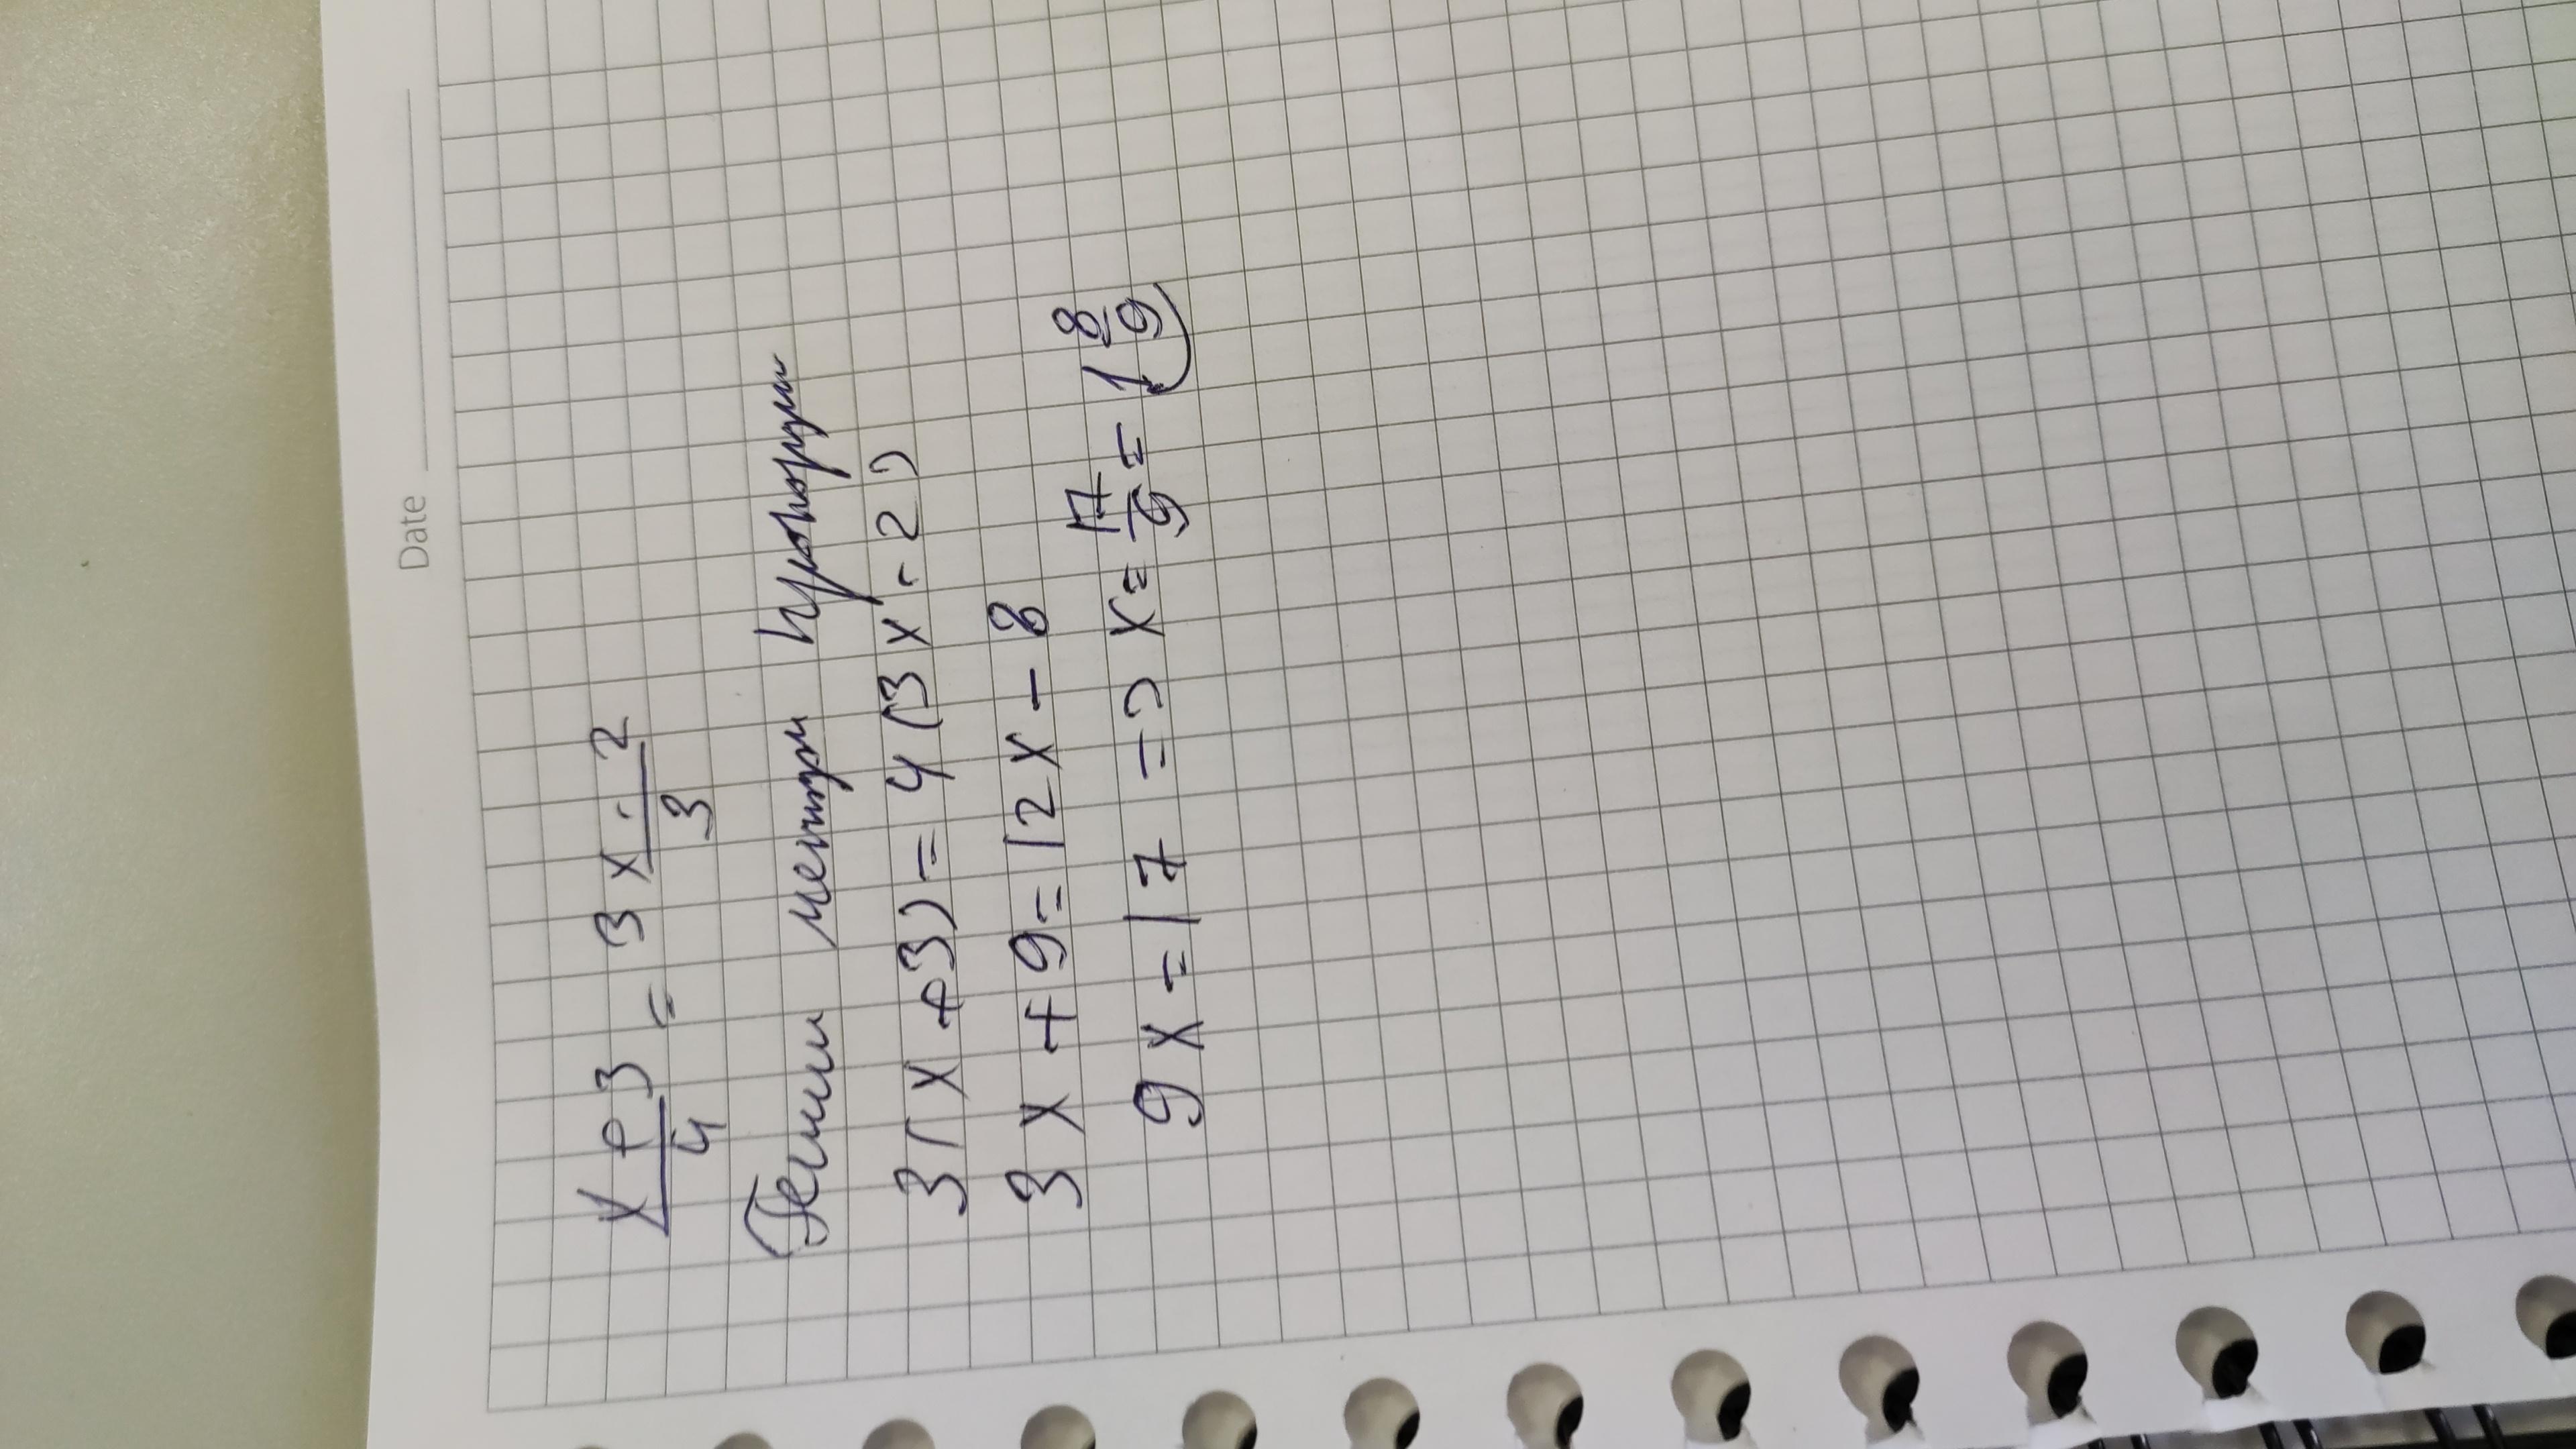 Date
x + 3 / 4 = 3x - 2 / 3
Решим методом пропорции
3(x + 3) = 4(3x - 2)
3x + 9 = 12x - 8
9x = 17 => x = 17/9 = 1 8/9